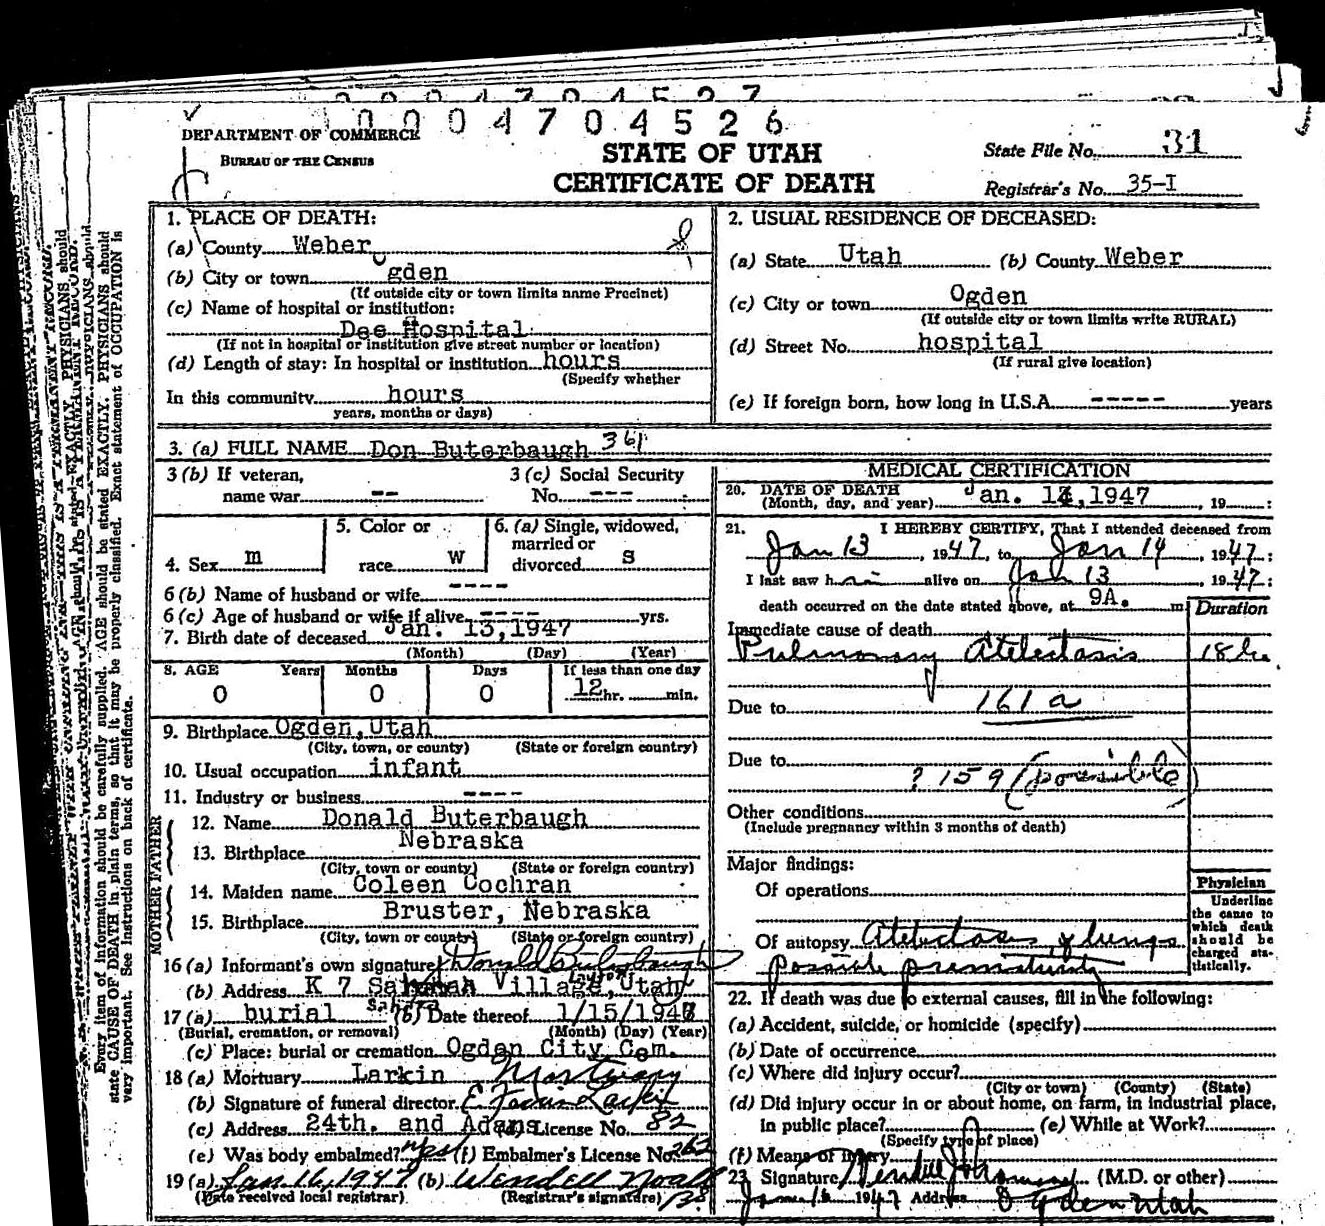 0 0 0 4 7 0 4 5 2 7
0 0 0 4 7 0 4 5 2 6
DEPARTMENT OF COMMERCE
BUREAU OF THE CENSUS
STATE OF UTAH
CERTIFICATE OF DEATH
State File No. 31
Registrar's No. 35-I
1. PLACE OF DEATH:
(a) County Weber
(b) City or town Ogden
(If outside city or town limits name Precinct)
(c) Name of hospital or institution:
Dee Hospital
(If not in hospital or institution give street number or location)
(d) Length of stay: In hospital or institution hours
(Specify whether
In this community hours
years, months or days)
2. USUAL RESIDENCE OF DECEASED:
(a) State Utah (b) County Weber
(c) City or town Ogden
(If outside city or town limits write RURAL)
(d) Street No. hospital
(If rural give location)
(e) If foreign born, how long in U.S.A. ----- years
3. (a) FULL NAME Don Buterbaugh 361
3 (b) If veteran, name war -- 3 (c) Social Security No. ---
4. Sex m 5. Color or race W 6. (a) Single, widowed, married or divorced S
6 (b) Name of husband or wife ----
6 (c) Age of husband or wife if alive ---- yrs.
7. Birth date of deceased Jan. 13,1947
(Month) (Day) (Year)
8. AGE Years Months Days If less than one day
0 0 0 12 hr. min.
9. Birthplace Ogden,Utah
(City, town, or county) (State or foreign country)
10. Usual occupation infant
11. Industry or business ----
FATHER
12. Name Donald Buterbaugh
13. Birthplace Nebraska
(City, town or county) (State or foreign country)
MOTHER
14. Maiden name Coleen Cochran
15. Birthplace Bruster, Nebraska
(City, town or county) (State or foreign country)
16 (a) Informant's own signature Donald Buterbaugh
(b) Address K 7 Village, Utah
Layton
Sahara
17 (a) burial (b) Date thereof 1/15/1947
(Burial, cremation, or removal) (Month) (Day) (Year)
(c) Place: burial or cremation Ogden City Cem.
18 (a) Mortuary Larkin Mortuary
(b) Signature of funeral director Larkin
(c) Address 24th. and Adams (d) License No. 82
(e) Was body embalmed? yes (f) Embalmer's License No. 262
19 (a) Jan. 16, 1947 (b) Wendell Noall
(Date received local registrar) (Registrar's signature) 38
MEDICAL CERTIFICATION
20. DATE OF DEATH
(Month, day, and year) Jan. 14,1947 19 :
21. I HEREBY CERTIFY, That I attended deceased from
Jan 13, 1947, to Jan 14, 1947:
I last saw him alive on Jan 13, 1947:
death occurred on the date stated above, at 9A. m
Duration
Immediate cause of death
Pulmonary Atelectasis 18 hr.
Due to 161 a
Due to ? 159 (possible)
Other conditions
(Include pregnancy within 3 months of death)
Major findings:
Of operations
Of autopsy Atelectasis of lungs
possible prematurity
Physician
Underline the cause to which death should be charged statistically.
22. If death was due to external causes, fill in the following:
(a) Accident, suicide, or homicide (specify)
(b) Date of occurrence
(c) Where did injury occur?
(City or town) (County) (State)
(d) Did injury occur in or about home, on farm, in industrial place,
in public place? (e) While at Work?
(Specify type of place)
(f) Means of injury
23 Signature Wendell J Thomson (M.D. or other)
Jan 16 1947 Address Ogden Utah
Every item of information should be carefully supplied. AGE should be stated EXACTLY. PHYSICIANS should
state CAUSE OF DEATH in plain terms, so that it may be properly classified. Exact statement of OCCUPATION is
very important. See instructions on back of certificate.